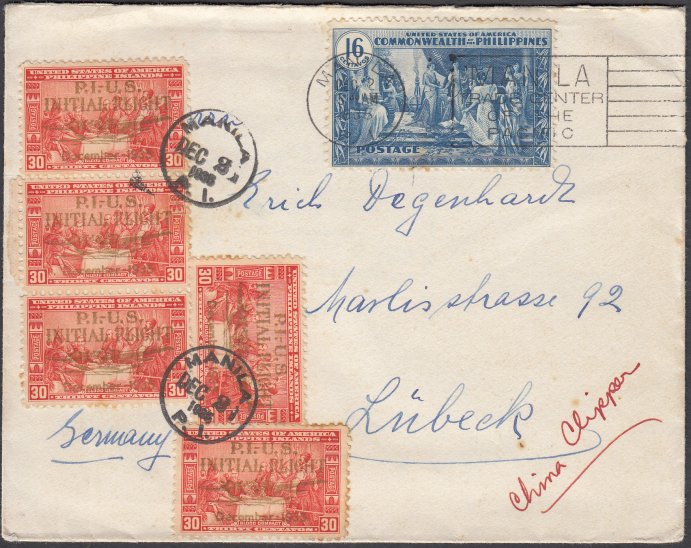 UNITED STATES OF AMERICA
PHILIPPINE ISLANDS
P.I.-U.S.
INITIAL FLIGHT
December-1935
30 30
THIRTY CENTAVOS
MANILA
DEC 2
P. I.
UNITED STATES OF AMERICA
16 COMMONWEALTH OF THE PHILIPPINES
POSTAGE
MANILA
TRADE CENTER
OF THE
PACIFIC
P.I.-U.S.
INITIAL FLIGHT
December-1935
30 30
THIRTY CENTAVOS
UNITED STATES OF AMERICA
PHILIPPINE ISLANDS
P.I.-U.S.
INITIAL FLIGHT
30 30
THIRTY CENTAVOS
POSTAGE
30
P.I.-U.S.
INITIAL FLIGHT
MANILA
DEC
P. I.
UNITED STATES OF AMERICA
PHILIPPINE ISLANDS
POSTAGE
P.I.-U.S.
INITIAL FLIGHT
BLOOD COMPACT
30 30
THIRTY CENTAVOS
Erich Degenhardt
Marlisstrasse 92
Lübeck
Germany
China Clipper